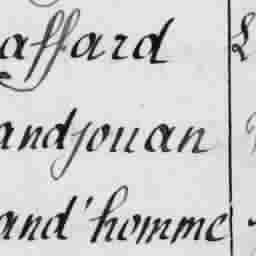 affard
andjouan
and'homme